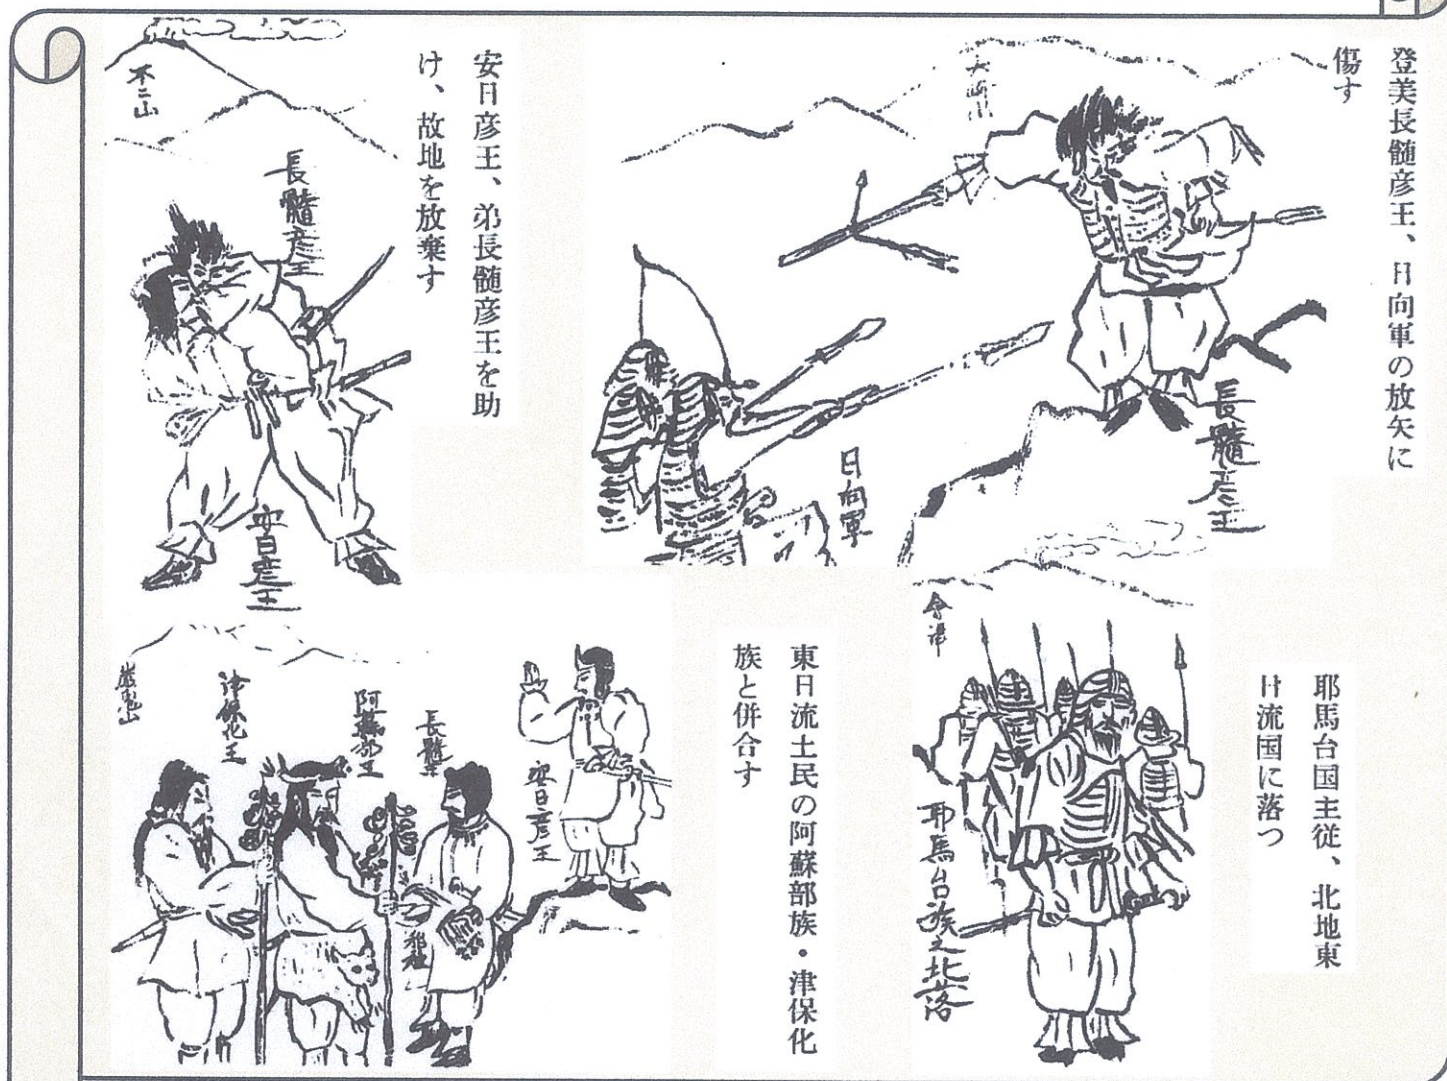 登美長髄彦王、日向軍の放矢に
傷す
長髄彦王
日向軍
安日彦王、弟長髄彦王を助
け、故地を放棄す
不二山
長髄彦王
安日彦王
耶馬台国主従、北地東
日流国に落つ
會津
耶馬台族之北落
東日流土民の阿蘇部族・津保化
族と併合す
安日彦王
長髄
阿蘇部王
津保化王